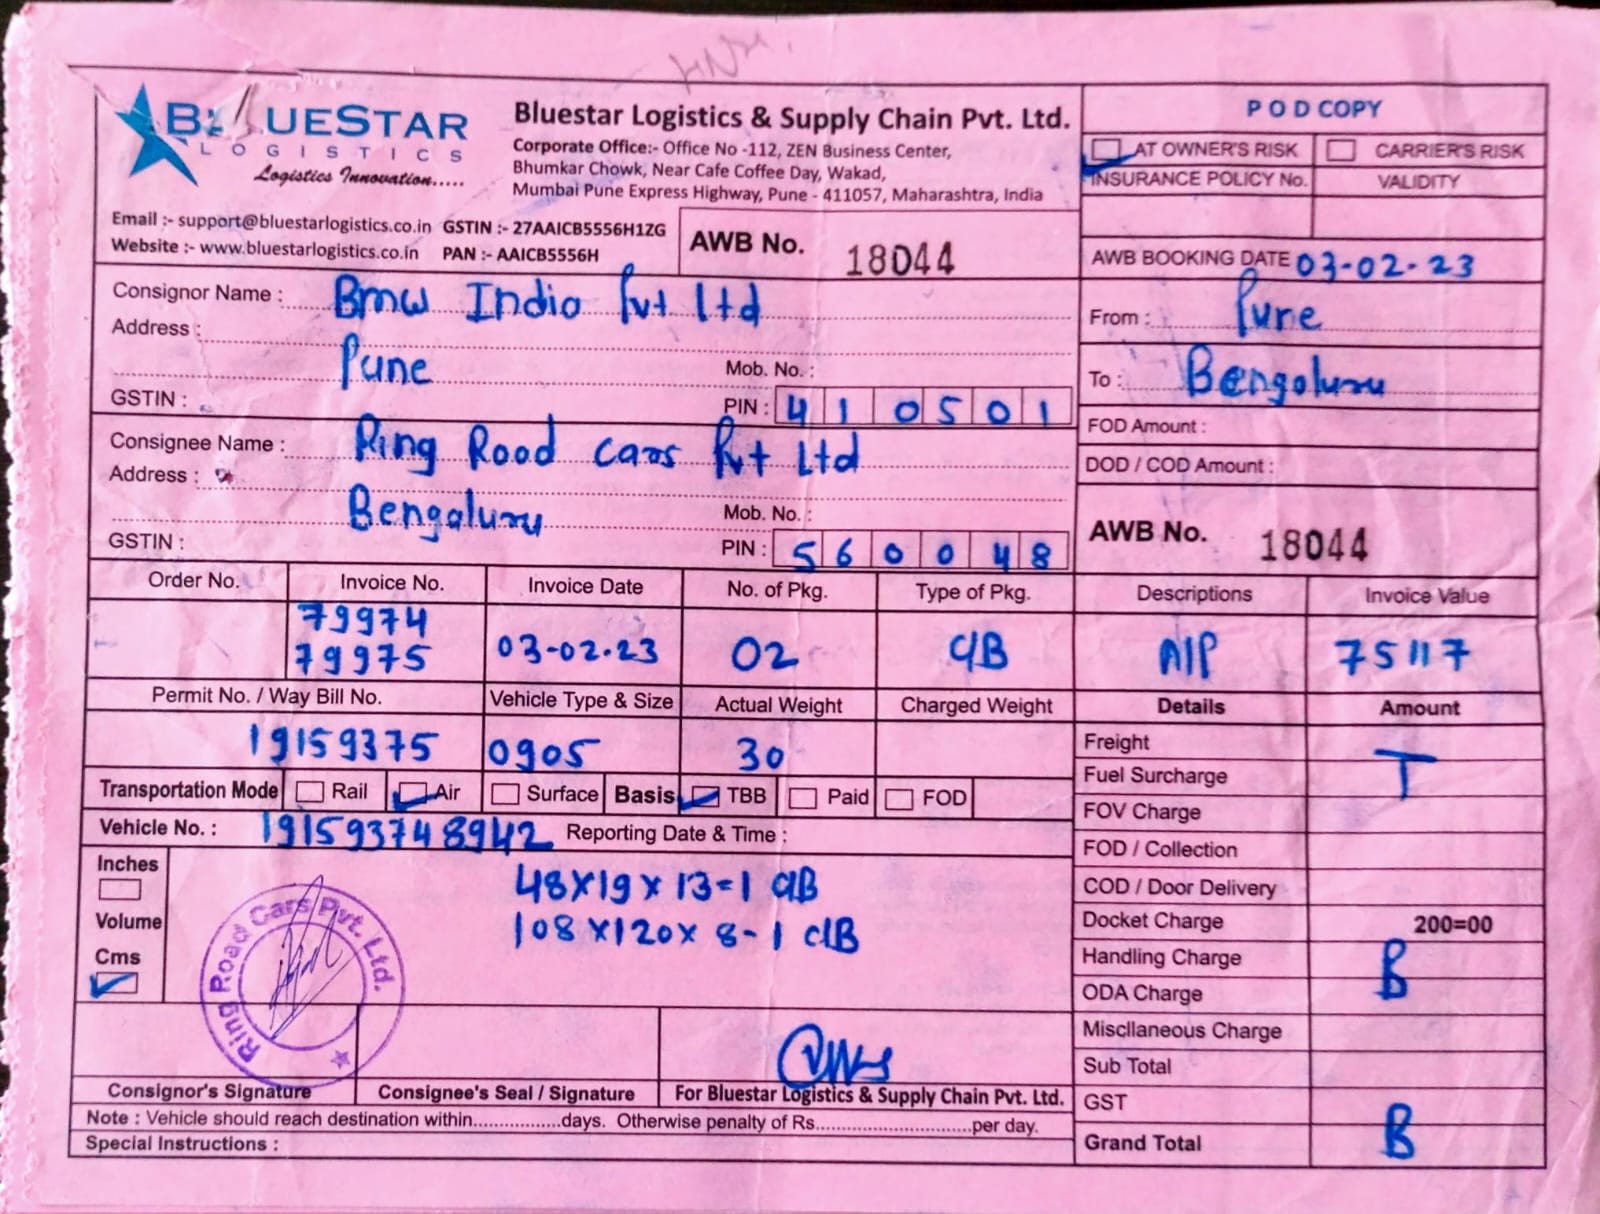 BLUESTAR
LOGISTICS
Logistics Innovation.....
Bluestar Logistics & Supply Chain Pvt. Ltd.
Corporate Office:- Office No -112, ZEN Business Center,
Bhumkar Chowk, Near Cafe Coffee Day, Wakad,
Mumbai Pune Express Highway, Pune - 411057, Maharashtra, India
Email :- support@bluestarlogistics.co.in GSTIN :- 27AAICB5556H1ZG
Website :- www.bluestarlogistics.co.in PAN :- AAICB5556H
AWB No. 18044
P O D COPY
AT OWNER'S RISK CARRIER'S RISK
INSURANCE POLICY No. VALIDITY
AWB BOOKING DATE 03-02-23
Consignor Name : Bmw India Pvt Ltd
Address :
Pune Mob. No. :
GSTIN : PIN : 410501
From : Pune
To : Bengaluru
FOD Amount :
DOD / COD Amount :
Consignee Name : Ring Road Cars Pvt Ltd
Address :
Bengaluru Mob. No. :
GSTIN : PIN : 560048
AWB No. 18044
Order No. Invoice No. Invoice Date No. of Pkg. Type of Pkg. Descriptions Invoice Value
79974
79975 03-02-23 02 C/B A/P 75117
Permit No. / Way Bill No. Vehicle Type & Size Actual Weight Charged Weight Details Amount
19159375 0905 30
Transportation Mode Rail Air Surface Basis TBB Paid FOD
Vehicle No. : 191593748942 Reporting Date & Time :
Inches
Volume
Cms
48x19x13-1 C/B
108x120x8-1 C/B
Ring Road Cars Pvt. Ltd.
Freight
T
Fuel Surcharge
FOV Charge
FOD / Collection
COD / Door Delivery
Docket Charge 200=00
Handling Charge
B
ODA Charge
Miscllaneous Charge
Sub Total
GST
Grand Total B
Consignor's Signature Consignee's Seal / Signature For Bluestar Logistics & Supply Chain Pvt. Ltd.
Note : Vehicle should reach destination within.................days. Otherwise penalty of Rs.............................per day.
Special Instructions :